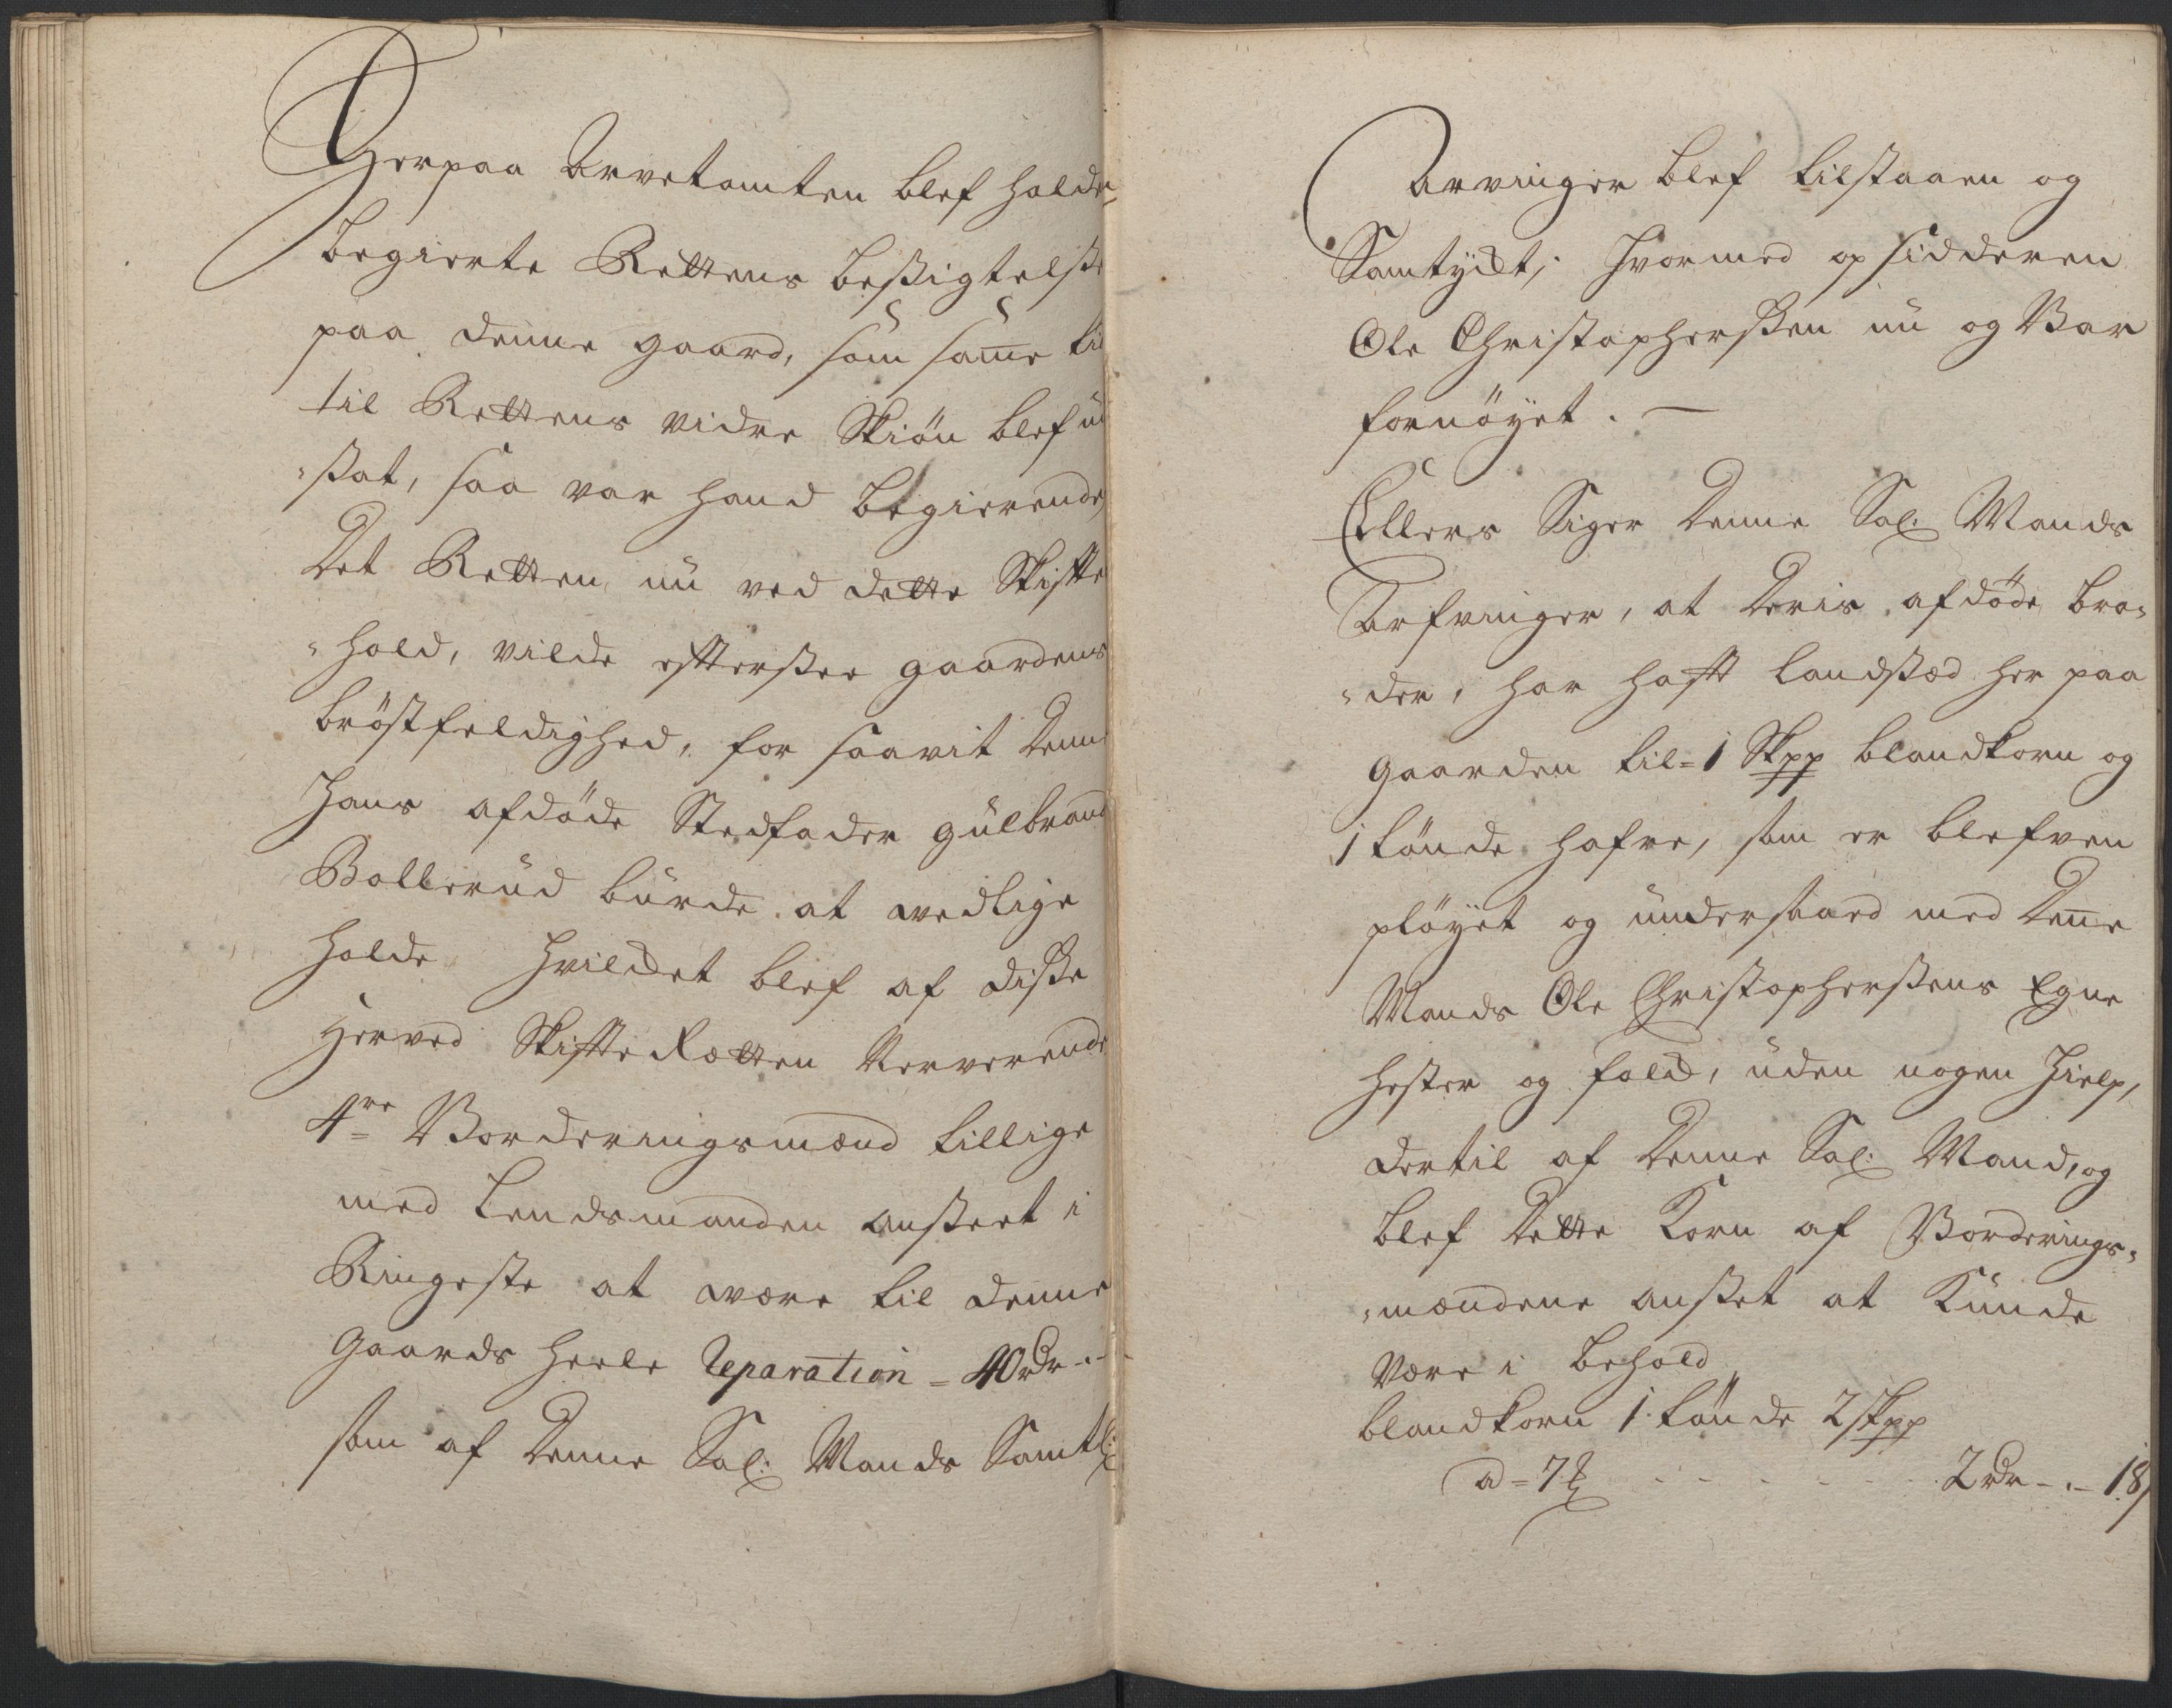 Herpaa Arvetomten blef holde
begierte Rettens beßigtelße
paa denne gaard, som samme til
til Rettens vidre Skiøn blef ud
"ßat, saa var hand begierende,
Det Retten nu ved dette Skifte
"hold, vilde efterßee gaardens
brøstfeldighed, for saavit denne
Hans afdøde Stedfader gulbrand
Bollerud burde at vedlige
holde hvilcket blef af diße
Herved Skifte Retten ververende
4re Vorderingsmænd tillige
med Lendsmanden anßeet i
Ringeste at være til denne
Gaards heele Reparation = 40 rdr -.-
som af denne Sal: Mands Samtl:
Arvinger blef tilstaaen og
Samtyckt, hvormed opsidderen
Ole Christopherßen nu og Var
fornøyet. —
Ellers Siger denne Sal: Mands
Arfvinger, at deris afdøde bro-
"der, har haft landstæd her paa
gaarden til = 1 Skpp blandkorn og
1 tønde hafre, som er blefven
pløyet og underlaard med denne
Mands Ole Christopherßens Egne
hester og folck, uden nogen Hielp,
dertil af denne Sal: Mand, og
blef dette Korn af Vorderings-
"mændene anßet at kunde
Være i behold
blandkorn 1 tønde 2 skpp
ad = 7 ß - - - - - - 2 rdr -.- 18/